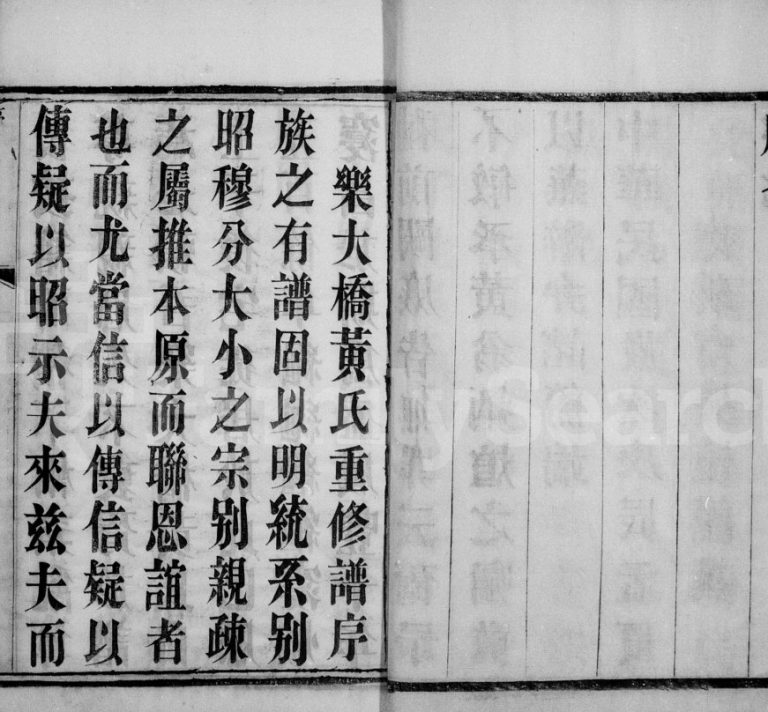 樂大橋黃氏重修譜序
族之有譜固以明統系别
昭穆分大小之宗别親疎
之屬推本原而聯恩誼者
也而尤當信以傳信疑以
傳疑以昭示夫來兹夫而